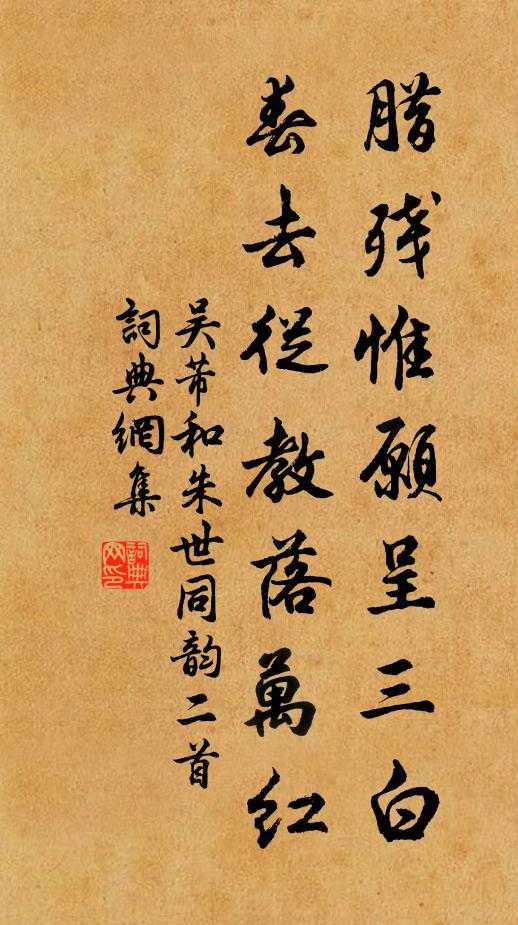 腊残惟願呈三白
春去從教落萬紅
吴芾和朱世同韵二首
詞典網集
詞典網印